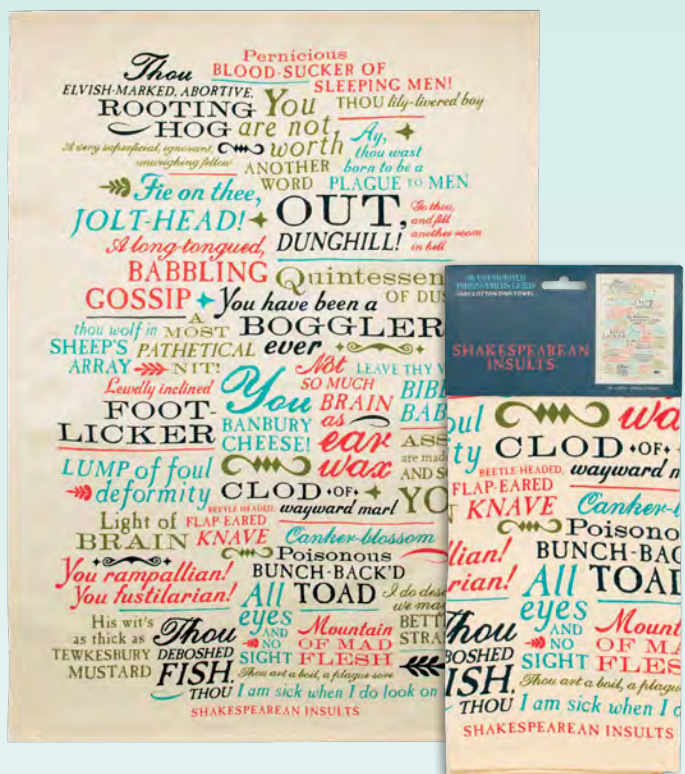 Thou
ELVISH-MARKED, ABORTIVE,
ROOTING
HOG
Pernicious
BLOOD-SUCKER OF
SLEEPING MEN!
You
are not
worth
ANOTHER
WORD
THOU lily-livered boy
A very superficial, ignorant,
unweighing fellow
Ay,
thou wast
born to be a
PLAGUE TO MEN
Fie on thee,
JOLT-HEAD!
OUT,
DUNGHILL!
Go thou,
and fill
another room
in hell
A long-tongued,
BABBLING
GOSSIP
Quintessen
OF DUS
You have been a
BOGGLER
ever
thou wolf in
SHEEP'S
ARRAY
A
MOST
PATHETICAL
NIT!
Not
SO MUCH
BRAIN
as
ear
wax
LEAVE THY V
BIBB
BAB
Lewdly inclined
FOOT-
LICKER
You
BANBURY
CHEESE!
ASS
are made
AND SO
YO
LUMP of foul
deformity
CLOD OF
wayward marl
Light of
BRAIN
BEETLE HEADED,
FLAP-EARED
KNAVE
Canker-blossom
Poisonous
BUNCH-BACK'D
TOAD
You rampallian!
You fustilarian!
All
eyes
AND
NO
SIGHT
I do desi
we may
BETT
STRA
His wit's
as thick as
TEWKESBURY
MUSTARD
Thou
DEBOSHED
FISH.
Mountain
OF MAD
FLESH
Thou art a boil, a plague-sore
THOU I am sick when I do look on
SHAKESPEAREAN INSULTS
THE UNEMPLOYED
PHILOSOPHERS GUILD
100% COTTON DISH TOWEL
SHAKESPEAREAN
INSULTS
wa
oul
ty
CLOD OF
wayward m
BEETLE HEADED,
FLAP-EARED
KNAVE
Canker-b
Poisono
BUNCH-BAC
TOA
llian!
rian!
All
eyes
AND
NO
SIGHT
Thou
DEBOSHED
ISH.
Mount
OF MA
FLES
Thou art a boil, a plague
THOU I am sick when I d
SHAKESPEAREAN INSULTS